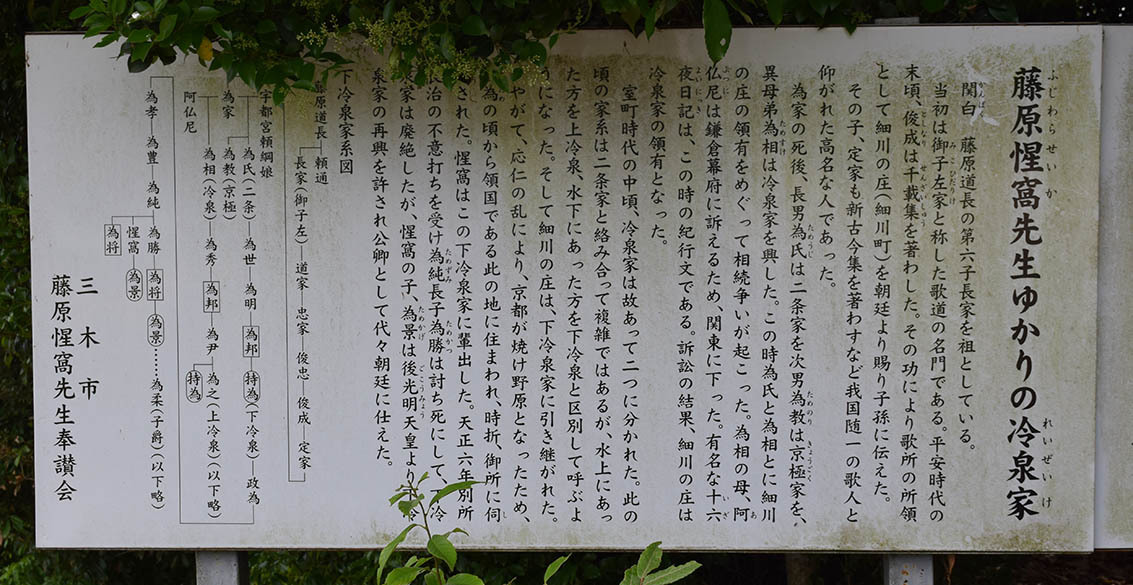 藤原惺窩先生ゆかりの冷泉家
ふじわらせいか
れいぜいけ
関白 藤原道長の第六子長家を祖としている。
当初は御子左家と称した歌道の名門である。平安時代の
末頃、俊成は千載集を著わした。その功により歌所の所領
として細川の庄(細川町)を朝廷より賜り子孫に伝えた。
その子、定家も新古今集を著わすなど我国随一の歌人と
仰がれた高名な人であった。
為家の死後、長男為氏は二条家を次男為教は京極家を、
異母弟為相は冷泉家を興した。この時為氏と為相とに細川
の庄の領有をめぐって相続争いが起こった。為相の母、阿
仏尼は鎌倉幕府に訴えるため、関東に下った。有名な十六
夜日記は、この時の紀行文である。訴訟の結果、細川の庄は
冷泉家の領有となった。
室町時代の中頃、冷泉家は故あって二つに分かれた。此の
頃の家系は二条家と絡み合って複雑ではあるが、水上にあっ
た方を上冷泉、水下にあった方を下冷泉と区別して呼ぶよ
うになった。そして細川の庄は、下冷泉家に引き継がれた。
やがて、応仁の乱により、京都が焼け野原となったため、
為の頃から領国である此の地に住まわれ、時折、御所に伺
された。惺窩はこの下冷泉家に輩出した。天正六年別所
長治の不意打ちを受け為純長子為勝は討ち死にして、冷
泉家は廃絶したが、惺窩の子、為景は後光明天皇より冷
泉家の再興を許され公卿として代々朝廷に仕えた。
下冷泉家系図
藤原道長 頼通
長家(御子左) 道家 忠家 俊忠 俊成 定家
宇都宮頼綱娘
為家
阿仏尼
為氏(二条) 為世 為明 為邦 持為(下冷泉) 政為
為教(京極
為相(冷泉) 為秀 為邦 為尹 為之(上冷泉)(以下略)
持為
為孝 為豊 為純 為勝 為将 為景……為柔(子爵)(以下略)
惺窩 為景
為将
三木市
藤原惺窩先生奉讃会